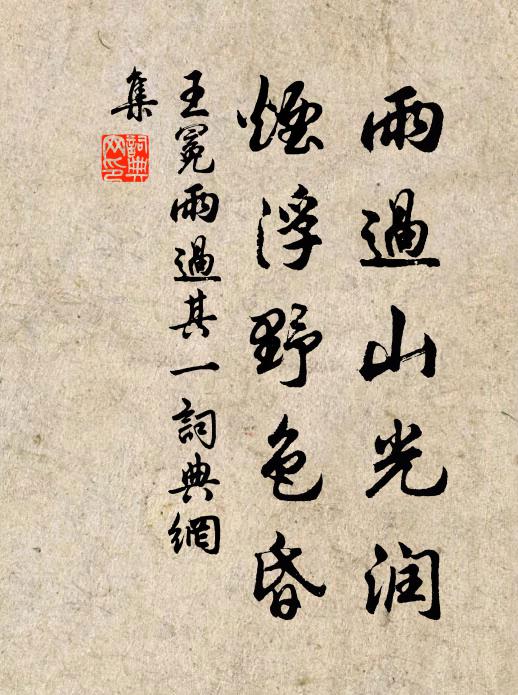 雨過山光润
煙浮野色昏
王冕雨過其一詞典網
集
詞典
网印